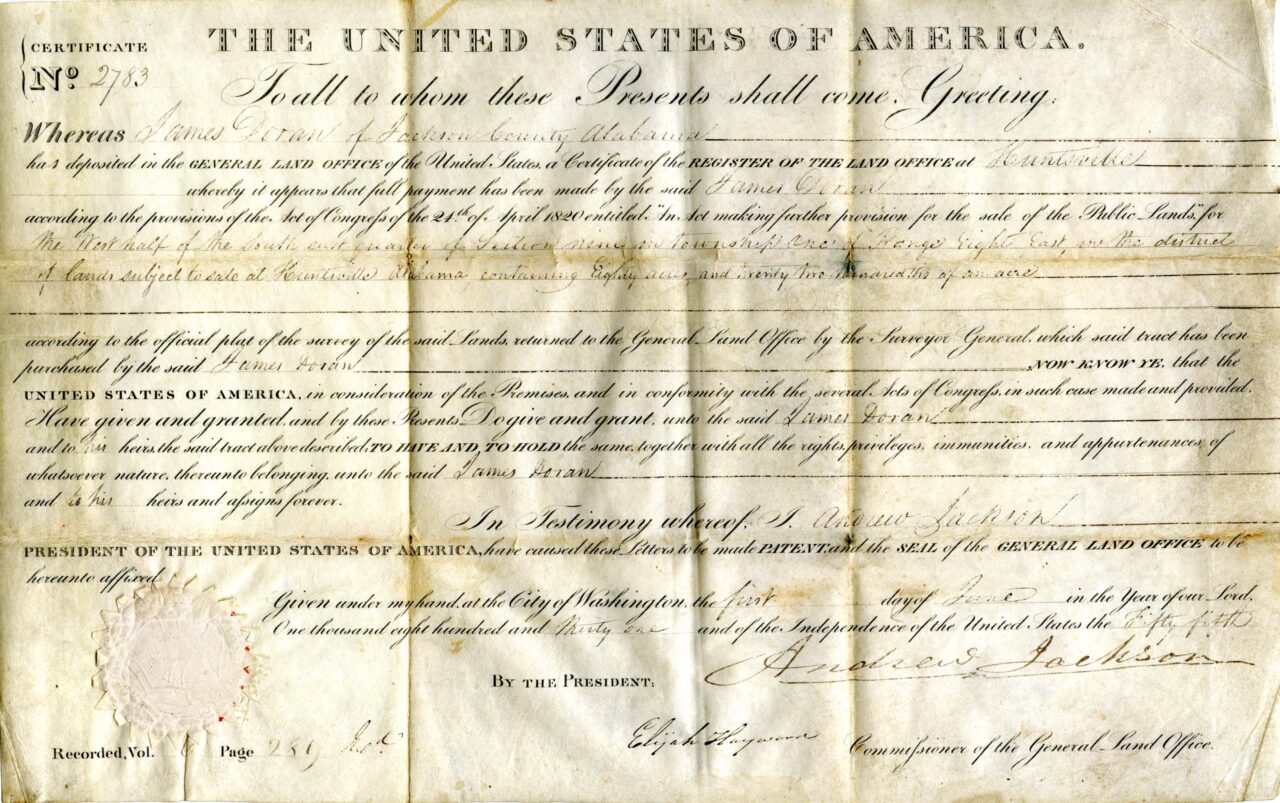 CERTIFICATE
No. 2783
THE UNITED STATES OF AMERICA.
To all to whom these Presents shall come, Greeting:
Whereas James Doran of Jackson County Alabama
has deposited in the GENERAL LAND OFFICE of the United States, a Certificate of the REGISTER OF THE LAND OFFICE at Huntsville
whereby it appears that full payment has been made by the said James Doran
according to the provisions of the Act of Congress of the 24th of April 1820 entitled "An Act making further provision for the sale of the Public Lands," for
the West half of the South east quarter of Section nine in township One of Range Eight East, in the district
of lands subject to sale at Huntsville Alabama, containing Eighty acres, and twenty two hundredths of an acre
according to the official plat of the survey of the said Lands, returned to the General Land Office by the Surveyor General, which said tract has been
purchased by the said James Doran NOW KNOW YE, that the
UNITED STATES OF AMERICA, in consideration of the Premises, and in conformity with the several Acts of Congress, in such case made and provided,
Have given and granted, and by these Presents Do give and grant, unto the said James Doran
and to his heirs, the said tract above described; TO HAVE AND TO HOLD the same, together with all the rights, privileges, immunities, and appurtenances of
whatsoever nature, thereunto belonging, unto the said James Doran
and to his heirs and assigns forever.
In Testimony whereof, I, Andrew Jackson
PRESIDENT OF THE UNITED STATES OF AMERICA, have caused these Letters to be made PATENT, and the SEAL of the GENERAL LAND OFFICE to be
hereunto affixed
Given under my hand, at the City of Washington, the first day of June in the Year of our Lord,
One thousand eight hundred and thirty one and of the Independence of the United States the Fifty fifth
Andrew Jackson
BY THE PRESIDENT:
Elijah Hayward Commissioner of the General Land Office.
Recorded, Vol. 6 Page 289